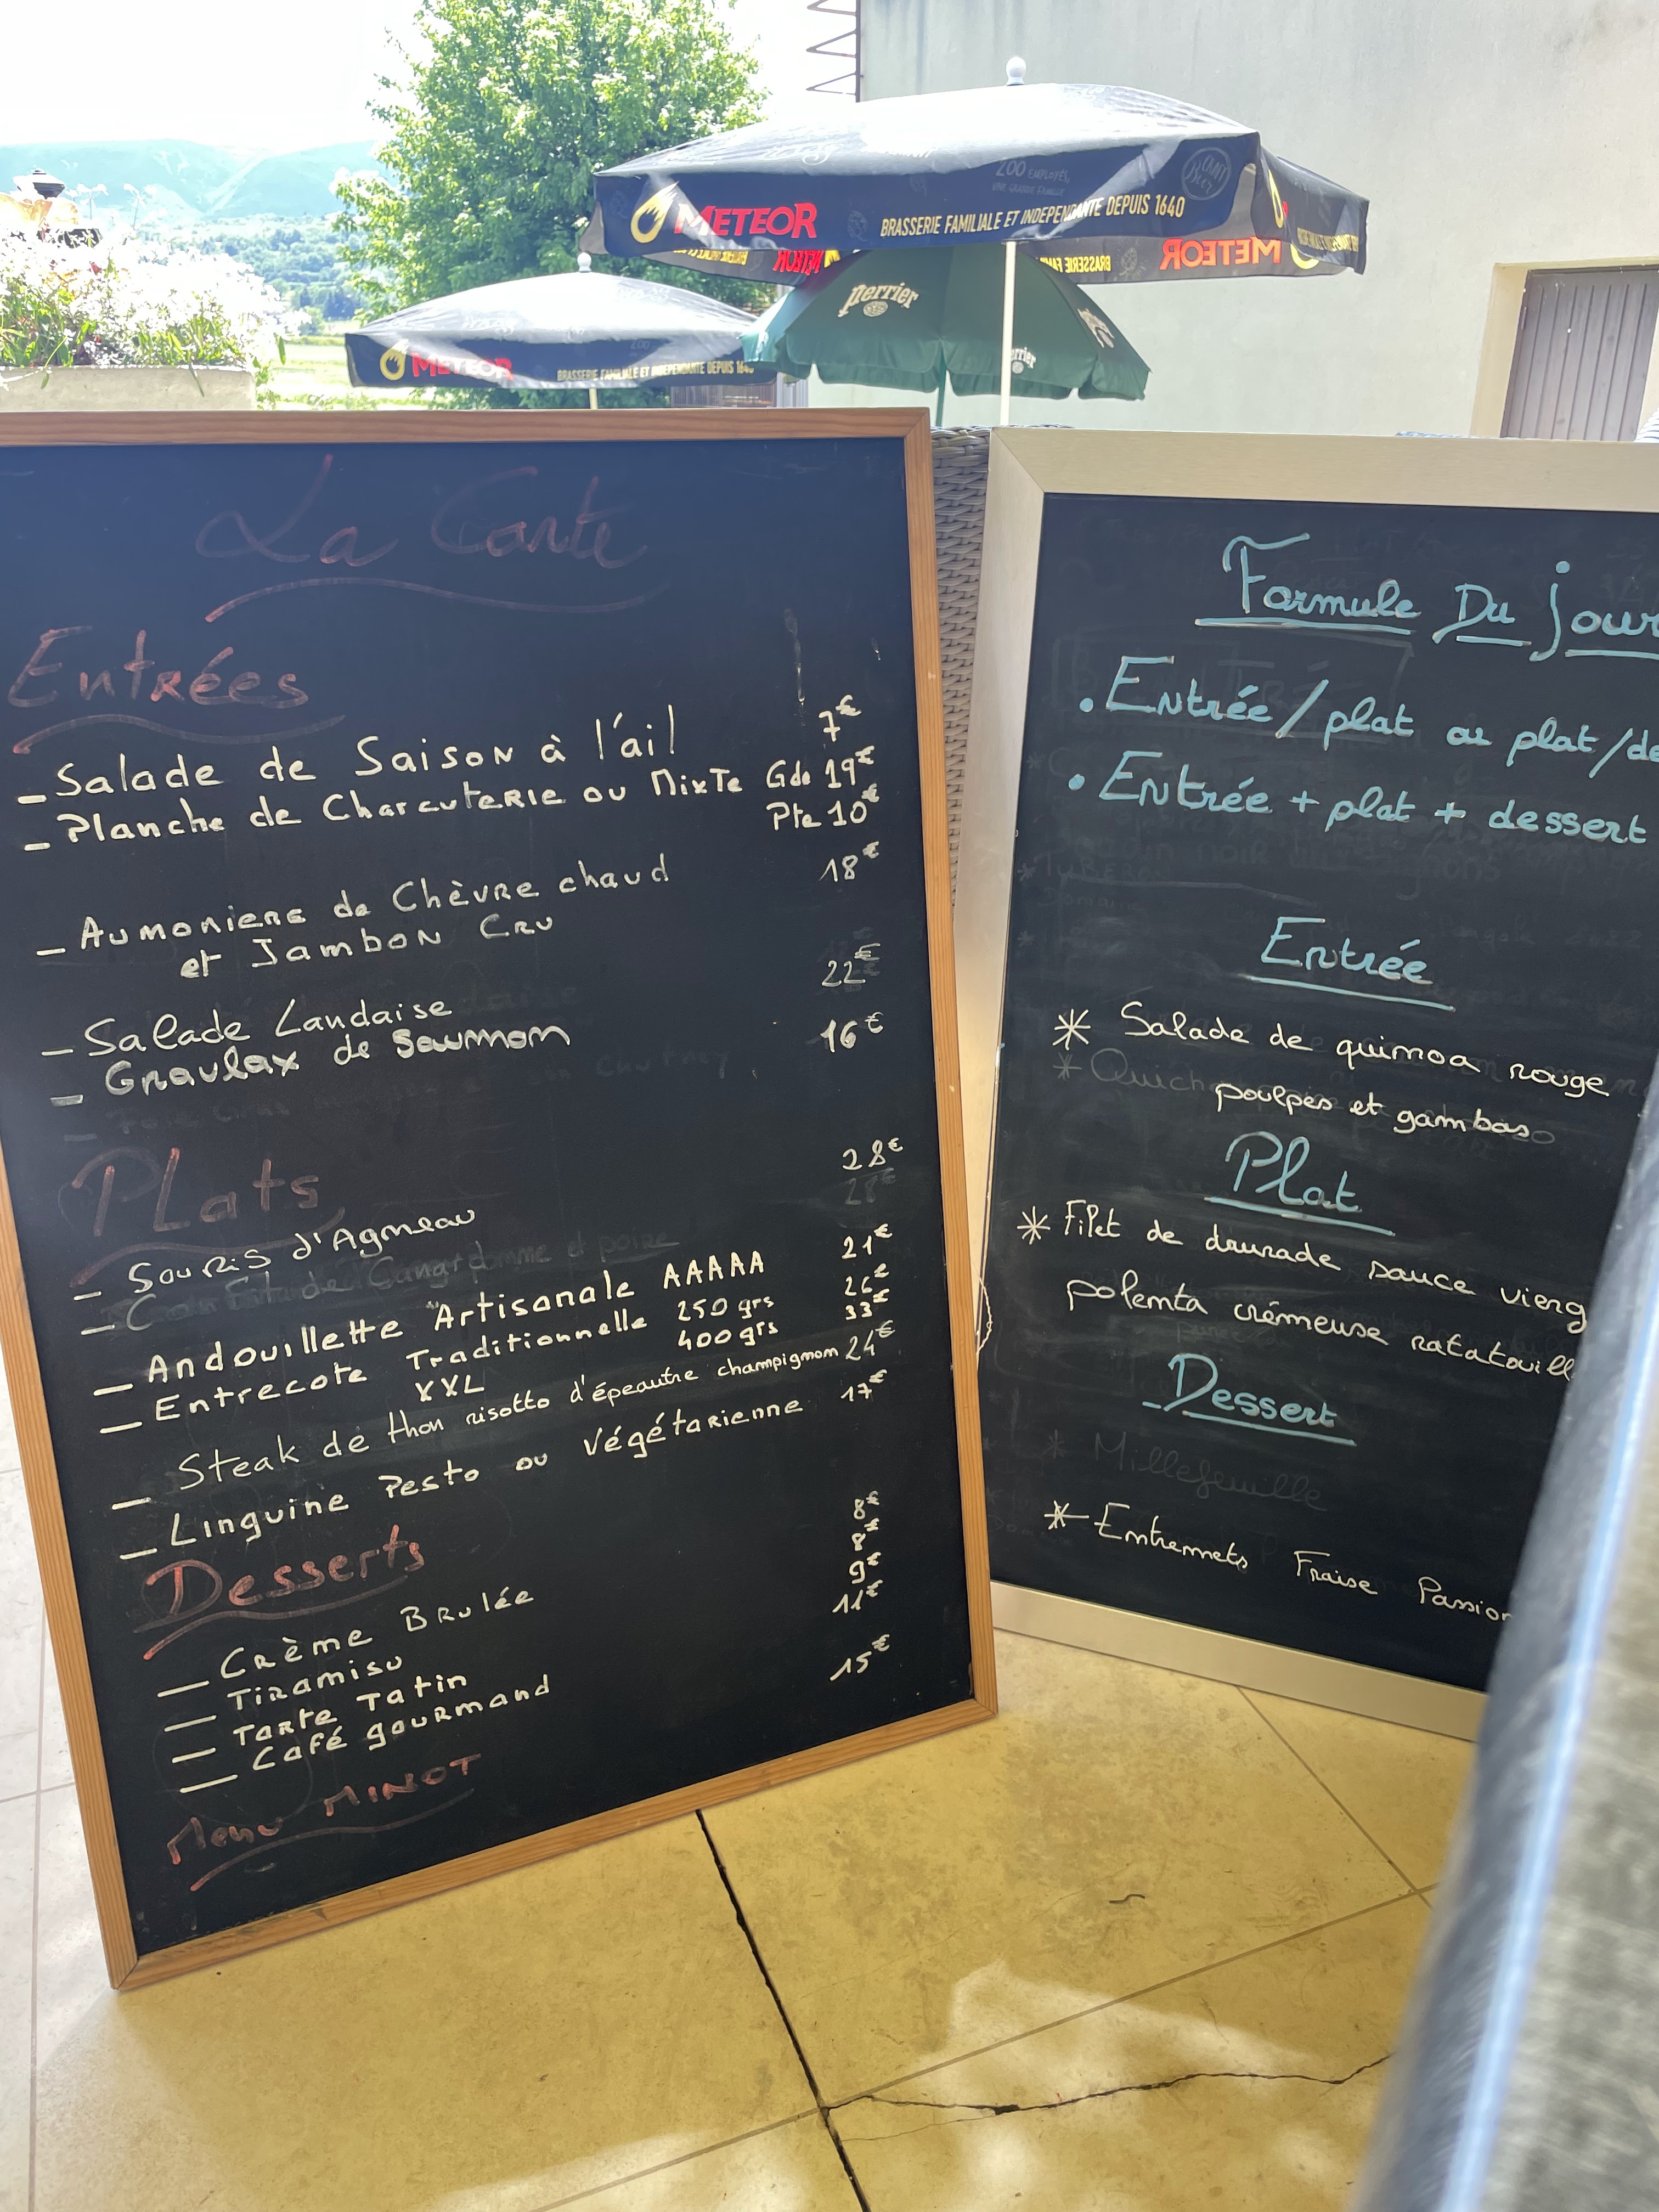 METEOR
BRASSERIE FAMILIALE ET INDEPENDANTE DEPUIS 1640
200 EMPLOYÉS,
UNE GRANDE FAMILLE
METEOR
perrier
METEOR
BRASSERIE FAMILIALE ET INDEPENDANTE DEPUIS 1640
La Carte
Entrées
- Salade de Saison à l'ail 7€
- Planche de Charcuterie ou Mixte Gde 19€
Pte 10€
- Aumoniere de Chèvre chaud 18€
et Jambon Cru
- Salade Landaise 22€
- Gravlax de Saumon 16€
Plats
- Souris d'Agneau 28€
- Andouillette Artisanale AAAAA 21€
- Entrecote Traditionnelle 250 grs 26€
XXL 400 grs 33€
- Steak de thon risotto d'épeautre champignon 24€
- Linguine Pesto ou Végétarienne 17€
Desserts
- Crème Brulée 8€
- Tiramisu 8€
- Tarte Tatin 9€
- Café gourmand 11€
Menu MINOT 15€
Formule Du jour
. Entrée / plat ou plat / de
. Entrée + plat + dessert
Entrée
* Salade de quinoa rouge
poulpes et gambas
Plat
* Filet de daurade sauce vierg
polenta crémeuse ratatouill
Dessert
* Millefeuille
* Entremets Fraise Passion